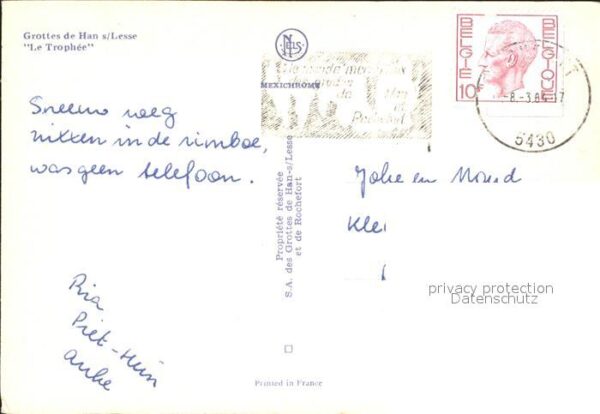 Grottes de Han s/Lesse
"Le Trophée"
NELS
MEXICHROME
BELGIE 10F
BELGIQUE
-8.-3.84-17
5430
Sneeuw weg
nixxen in de rimboe,
was geen telefoon.
Ria
Piet-Hein
Anke
Propriété réservée
S.A. des Grottes de Han-s/Lesse
et de Rochefort
Joke en
Klei
privacy protection
Datenschutz
Printed in France